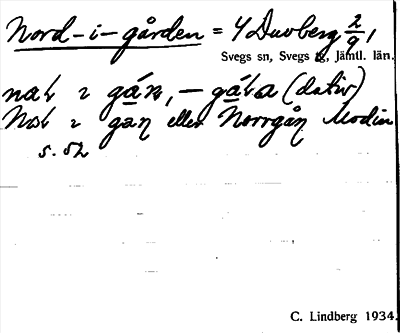 Nord-i-gården = 4 Duvberg 2/9,
Svegs sn, Svegs tg, Jämtl. län.
gán, – gáta (dativ)
eller Norrgån Modin
s. 52
C. Lindberg 1934.